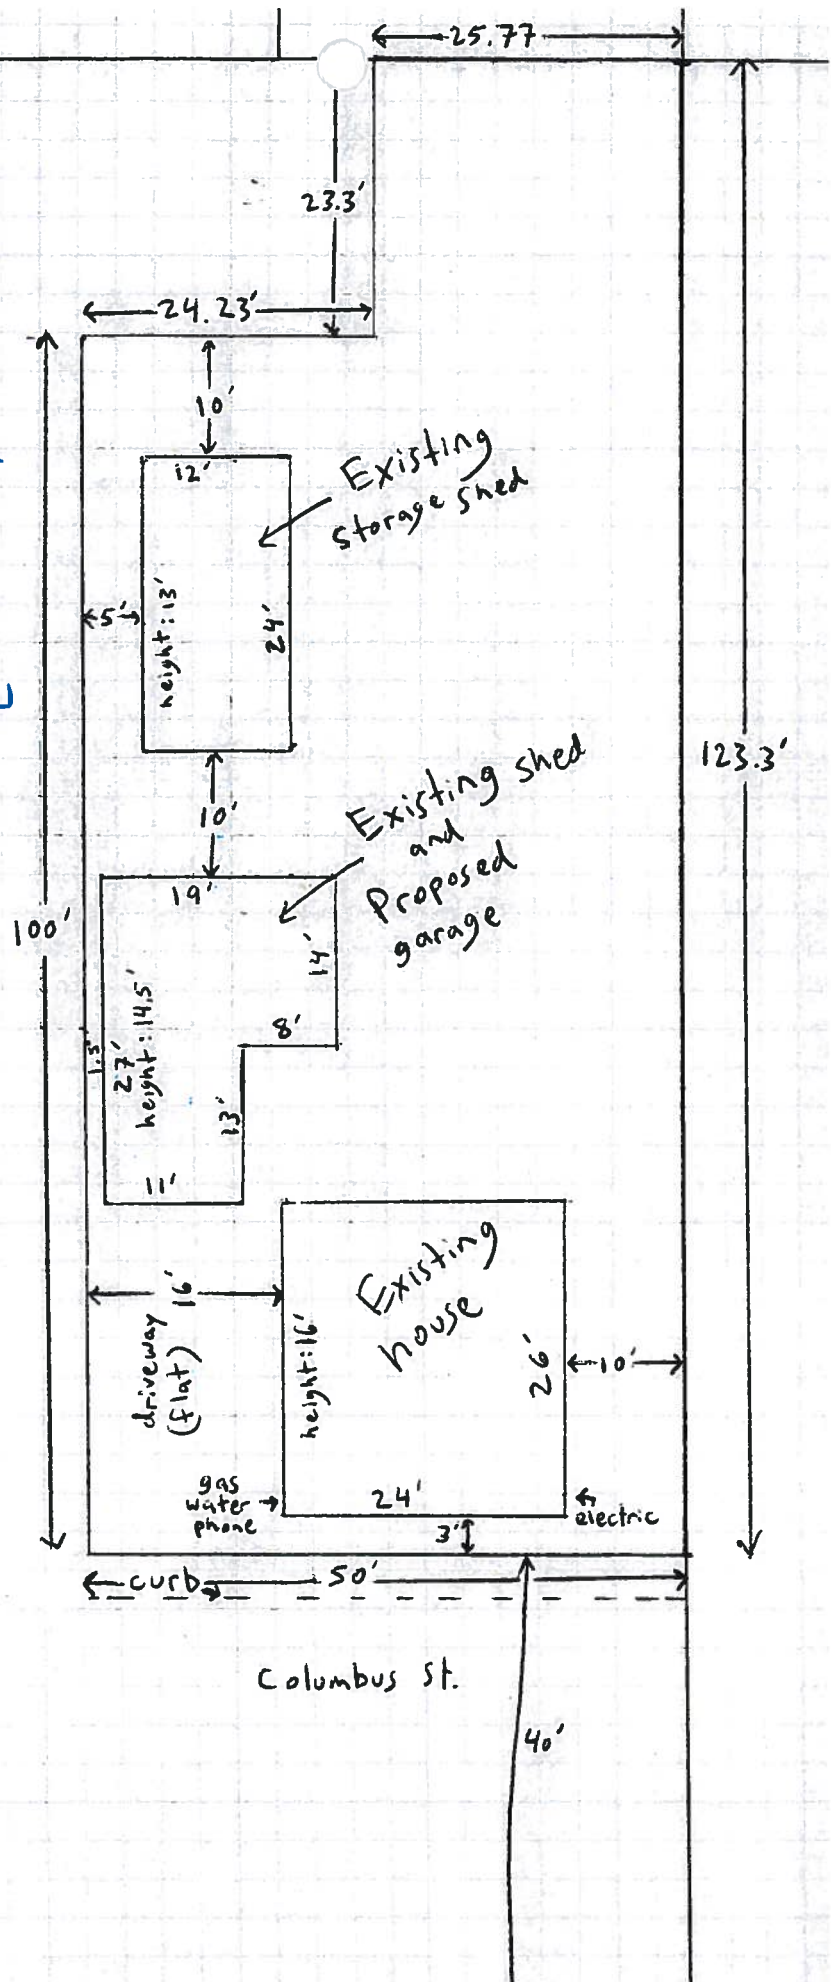 25.77
23.3'
24.23'
10'
12'
Existing
storage shed
5'
height: 13'
24'
123.3'
10'
Existing shed
and
Proposed
garage
19'
100'
14'
8'
1.5'
27'
height: 14.5'
13'
11'
16'
Existing
house
driveway
(flat)
height: 16'
26'
10'
gas
water
phone
24'
electric
3'
curb
50'
Columbus St.
40'